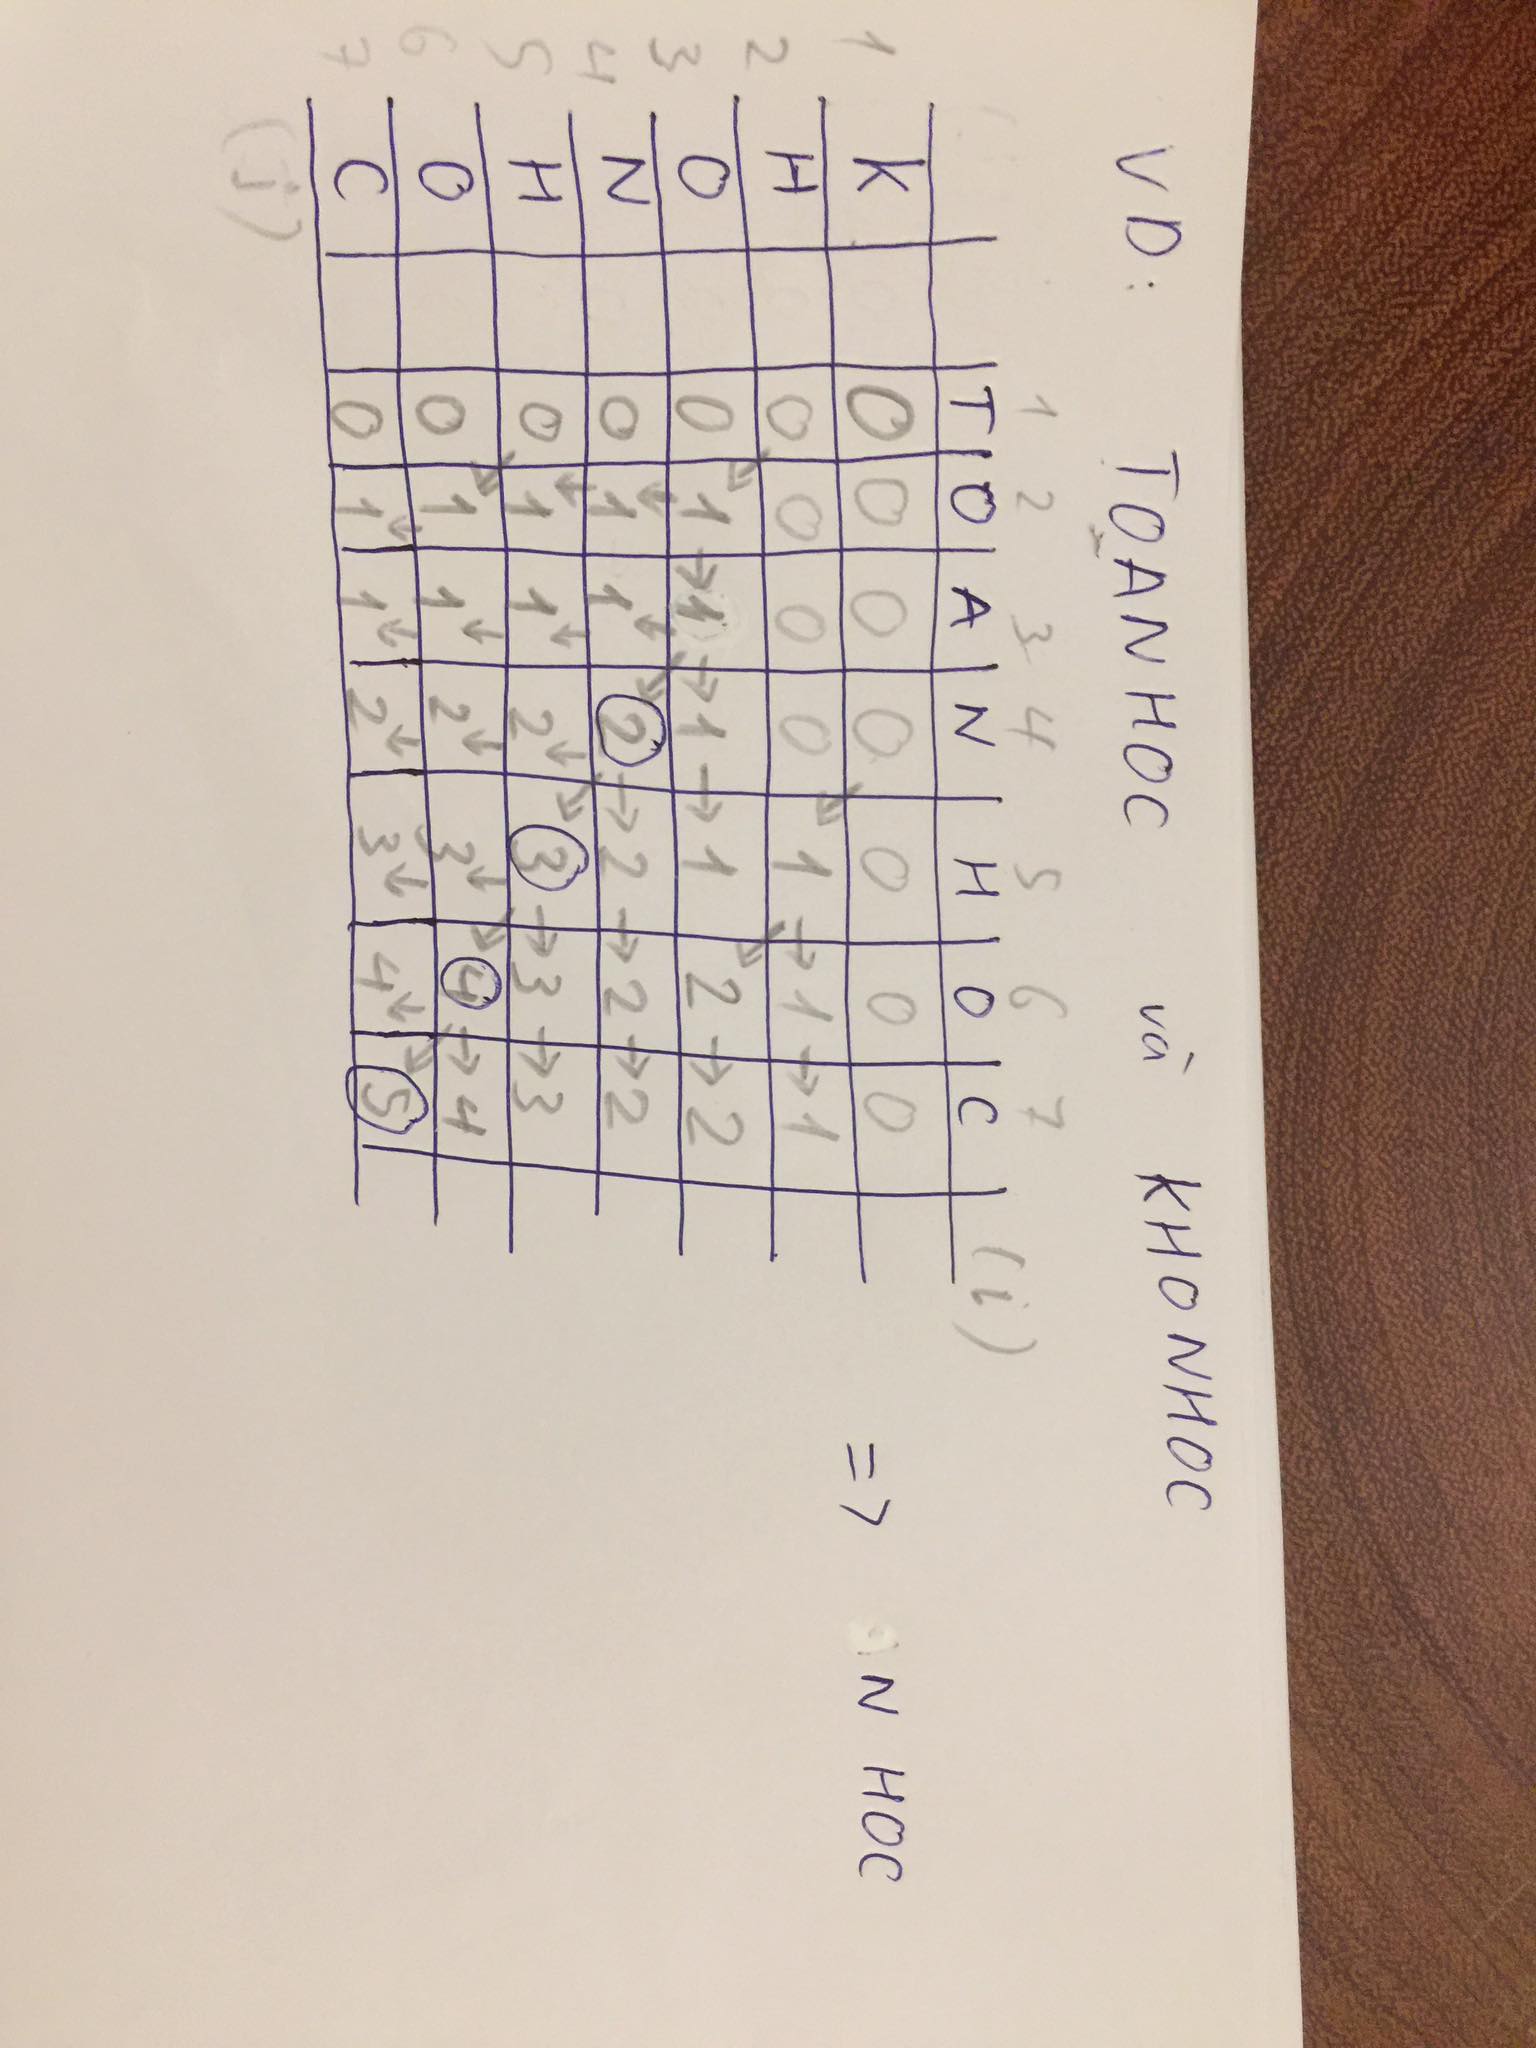 VD: TOANHOC và KHONHOC
1 2 3 4 5 6 7
T O A N H O C (i)
1 K 0 0 0 0 0 0 0 => N HOC
2 H 0 0 0 0 1 → 1 → 1
3 O 0 1 → 1 → 1 → 1 2 → 2
4 N 0 1 1 2 → 2 → 2 → 2
5 H 0 1 1 2 3 → 3 → 3
6 O 0 1 1 2 3 4 → 4
7 C 0 1 1 2 3 4 5
(j)